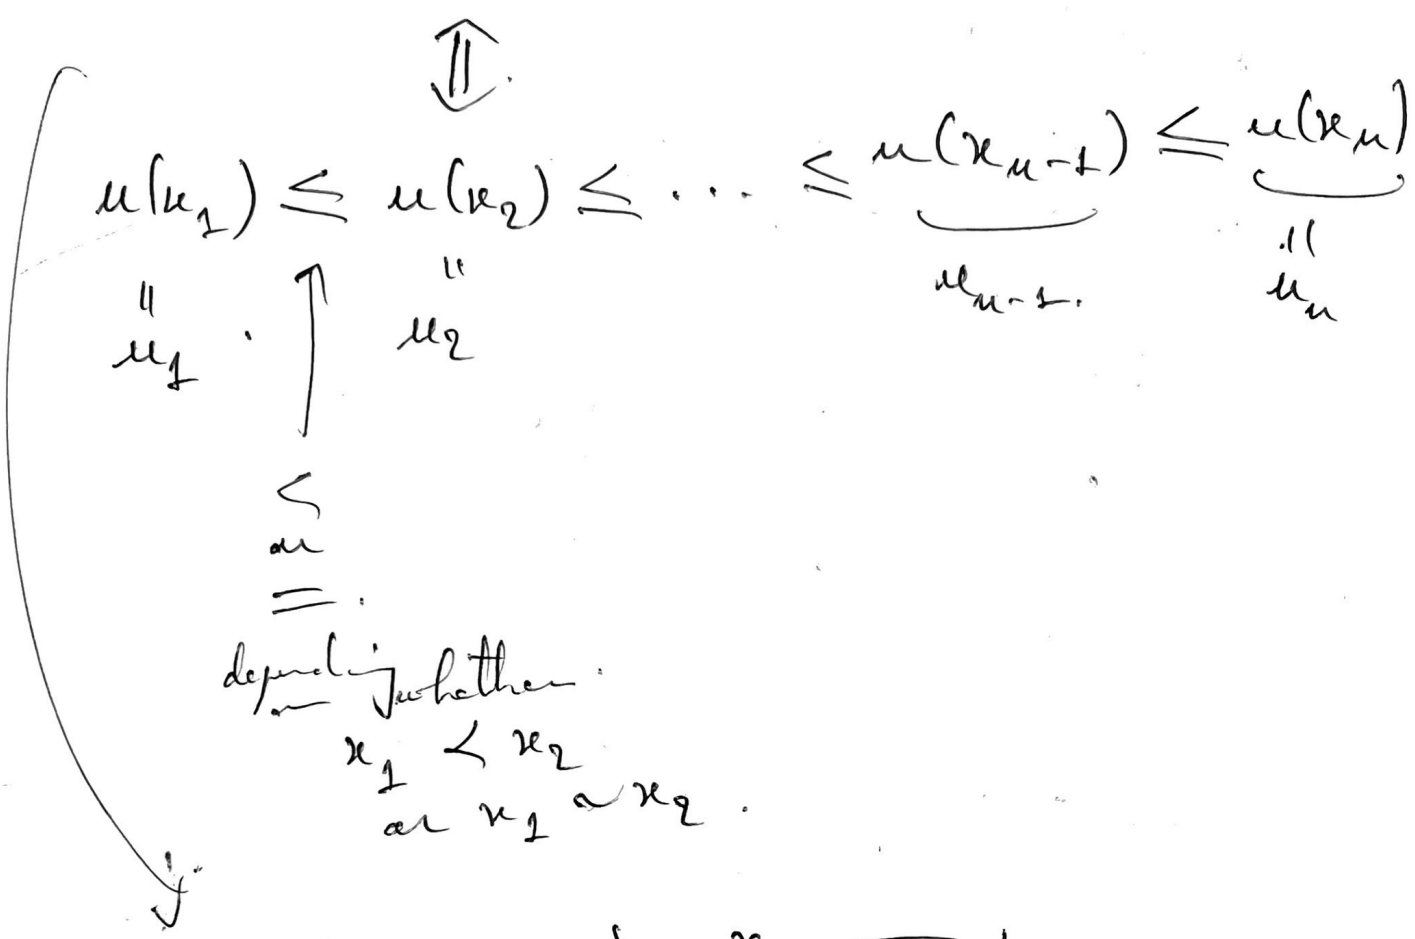 ⇕
u(x₁) ≤ u(x₂) ≤ ... ≤ u(xₙ₋₁) ≤ u(xₙ)
" " "
u₁ u₂ uₙ₋₁ uₙ
<
or
=
depending whether
on
x₁ ≺ x₂
or x₁ ~ x₂ .